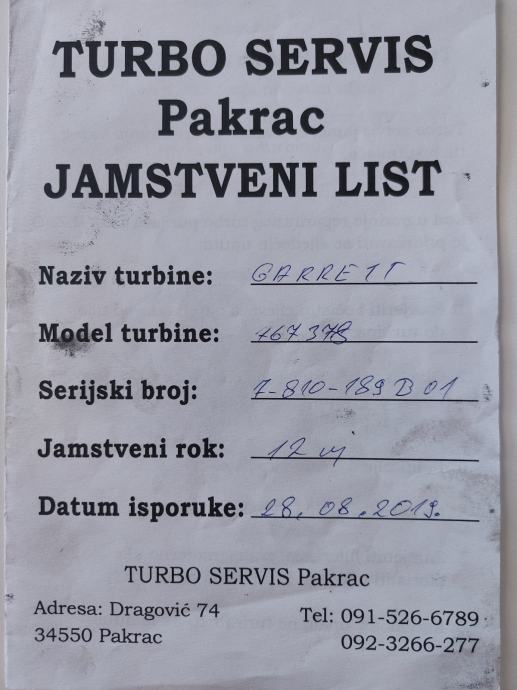 TURBO SERVIS
Pakrac
JAMSTVENI LIST
Naziv turbine: GARRETT
Model turbine: 767378
Serijski broj: 7-810-189 B 01
Jamstveni rok: 12 mj
Datum isporuke: 28. 08. 2019.
TURBO SERVIS Pakrac
Adresa: Dragović 74
34550 Pakrac
Tel: 091-526-6789
092-3266-277